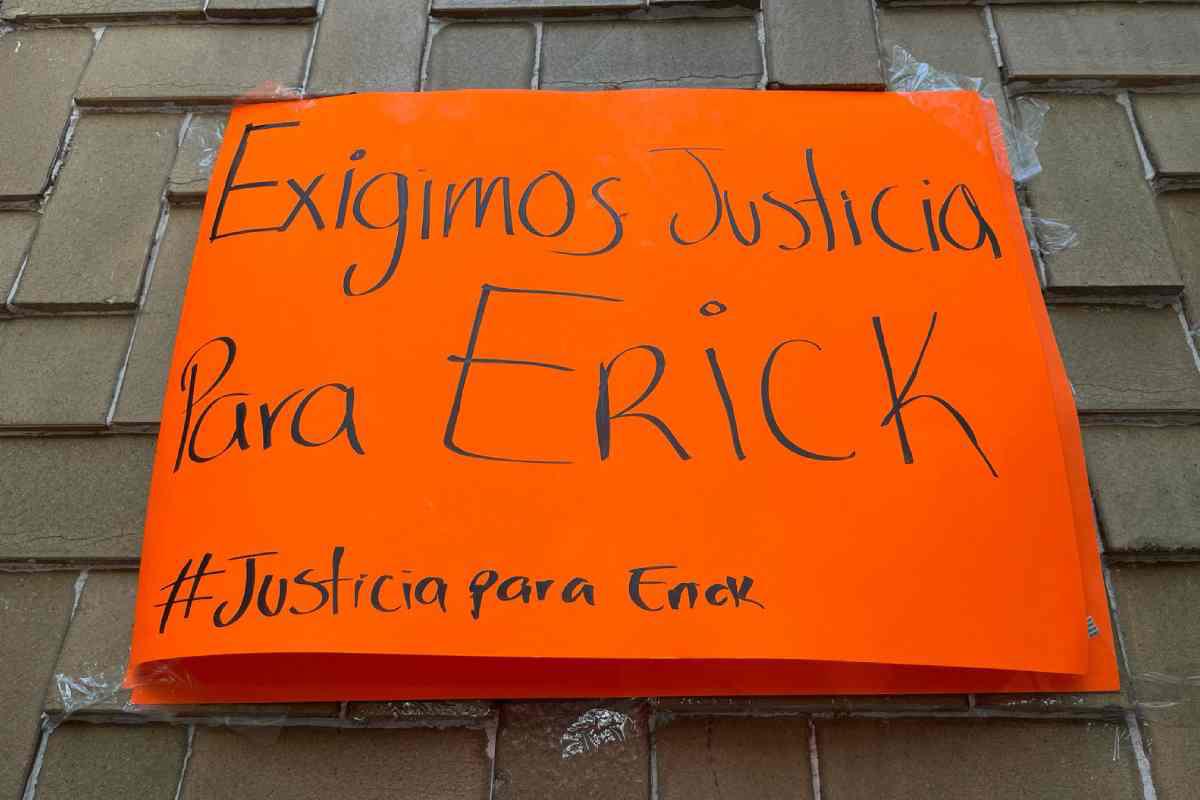 Exigimos Justicia
Para ERiCK
#Justicia para Erick